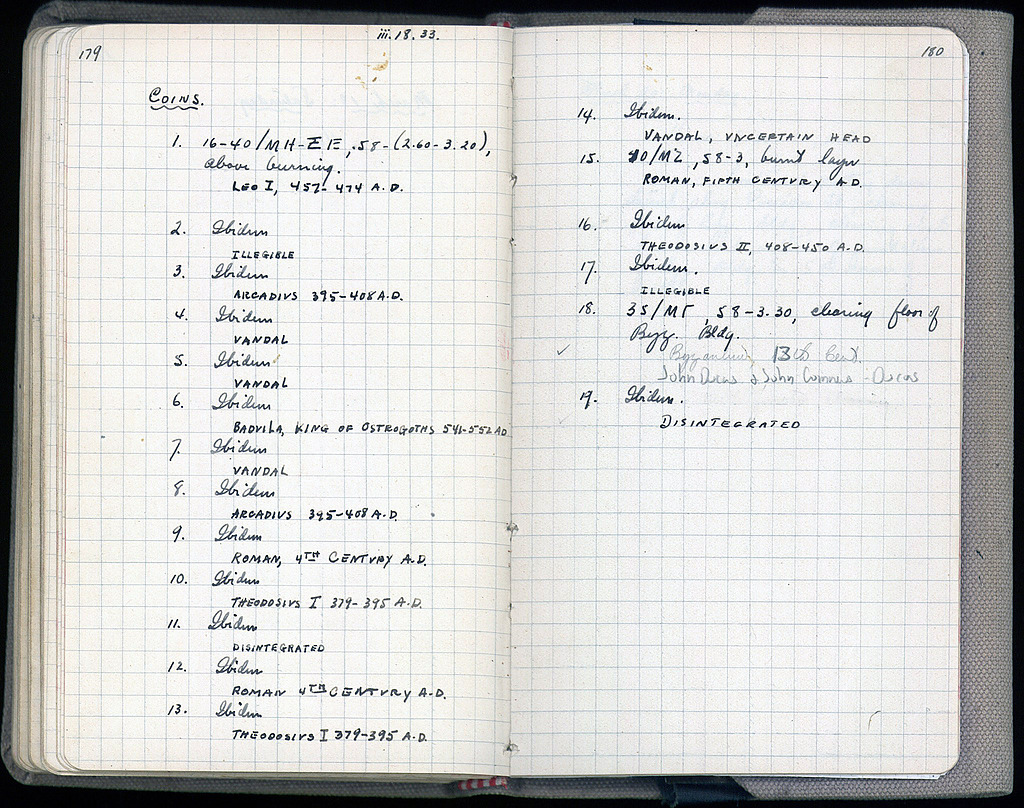 179
iii. 18. 33.
COINS.
1. 16-40/MH-ΞE, 58-(2.60-3.20),
above burning.
LEO I, 457-474 A.D.
2. Ibidem
ILLEGIBLE
3. Ibidem
ARCADIVS 395-408 A.D.
4. Ibidem
VANDAL
5. Ibidem
VANDAL
6. Ibidem
BADVILA, KING OF OSTROGOTHS 541-552 AD
7. Ibidem
VANDAL
8. Ibidem
ARCADIVS 395-408 A.D.
9. Ibidem
ROMAN, 4TH CENTVRY A.D.
10. Ibidem
THEODOSIVS I 379-395 A.D.
11. Ibidem
DISINTEGRATED
12. Ibidem
ROMAN 4TH CENTVRY A.D.
13. Ibidem
THEODOSIVS I 379-395 A.D.
180
14. Ibidem.
VANDAL, VNCERTAIN HEAD
15. /MZ, 58-3, burnt layer
ROMAN, FIFTH CENTVRY A.D.
16. Ibidem
THEODOSIVS II, 408-450 A.D.
17. Ibidem.
ILLEGIBLE
18. 35/MΓ, 58-3.30, clearing floor of
Byz. Bldg.
✓ Byzantine 13th Cent.
John Ducas & John Comnus - Ducas
19. Ibidem.
DISINTEGRATED